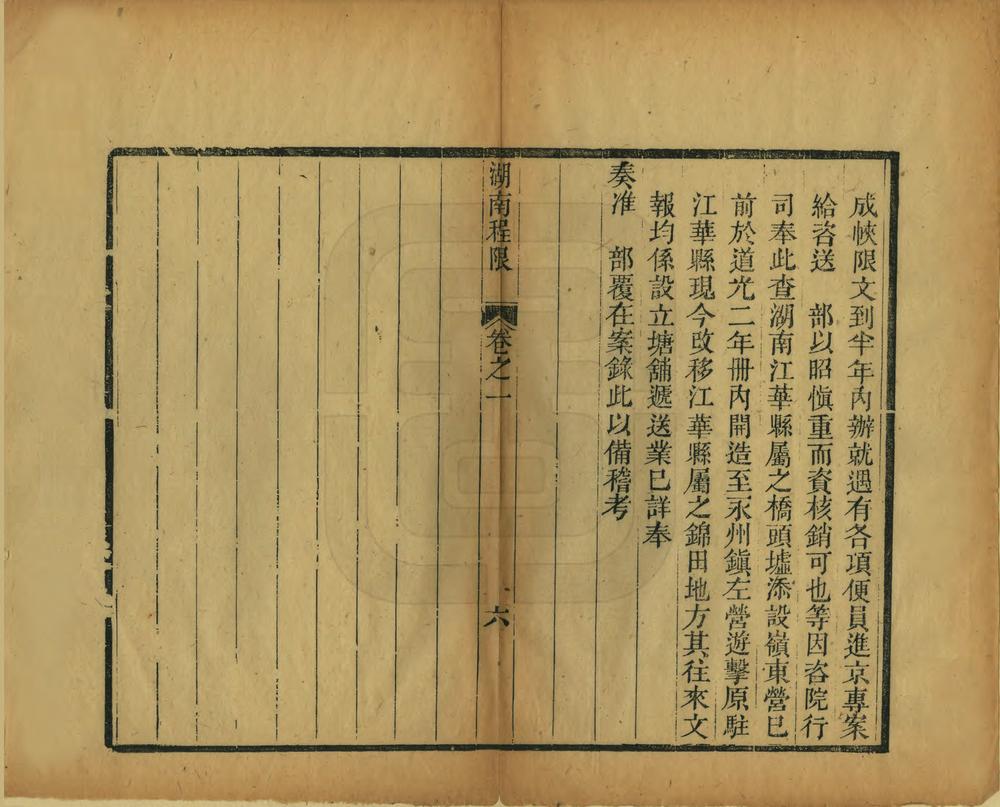 成帙限文到半年內辦就遇有各項便員進京專案
給咨送　部以昭慎重而資核銷可也等因咨院行
司奉此查湖南江華縣屬之橋頭墟添設嶺東營已
前於道光二年冊內開造至永州鎭左營遊擊原駐
江華縣現今改移江華縣屬之錦田地方其往來文
報均係設立塘舖遞送業已詳奉
奏准　部覆在案錄此以備稽考
湖南程限　卷之一　六